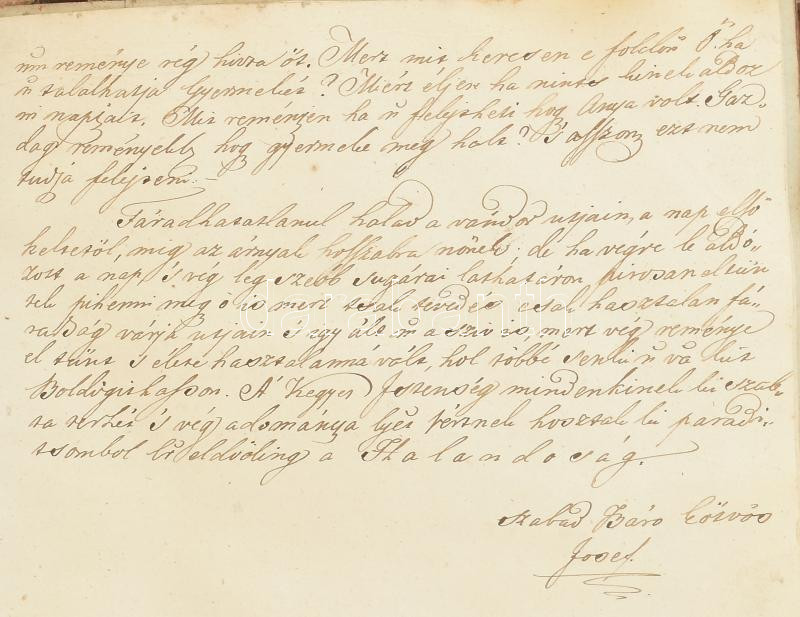 reménye rég hivta öt. Mert mit keressen e foldön Ö ha
n talalhatja Gyermekét? Miért éljen ha nints kinek áldoz
ni napjait. Mit reményen ha n felejtheti hog Anya volt Gaz-
dag reményekk hog gyermeke meg halt? S asszony ezt nem
tudja felejteni –
Fáradhatatlanul halad a vándor utjain, a nap elsö
keltetöl, mig az árnyak hosszabra nönek; de ha végre le áldó-
zott a nap s vég leg szebb sugárai láthataron pirosan eltün
tek pihenni még ö is mert tsak tévedez csak hasztalan fá-
radság várja utjain s igy ált a sziv is, mert vég reménye
el tünt s élete hasztalanna valt, hol többé senkit
Boldogithasson. A Kegyes Istenség mindenkinek ki szab-
ta terhét s vég adománya hosztak ki paradi-
tsombol Ur eldödöling a H a l a n d o s á g.
szabad Báro Eötvös
Josef.
darabanth